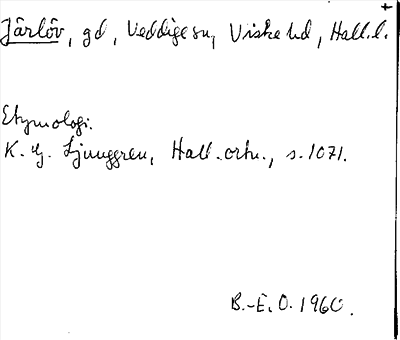 +
Järlöv, gd, Veddige sn, Viske hd, Hall. l.
Etymologi.
K. G. Ljunggren, Hall. ortn., s. 1071.
B.-E. O. 1960.